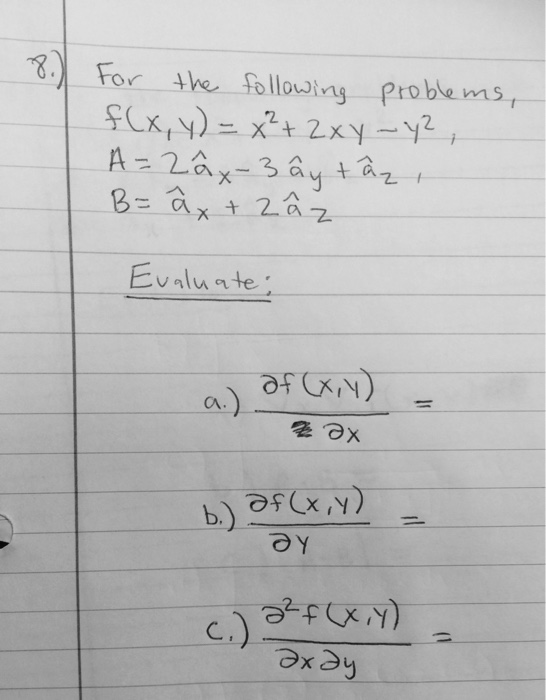 8.) For the following problems,
f(x,y) = x² + 2xy - y²,
A = 2âx - 3ây + âz,
B = âx + 2âz
Evaluate:
a.) ∂f(x,y)/∂x =
b.) ∂f(x,y)/∂y =
c.) ∂²f(x,y)/∂x∂y =